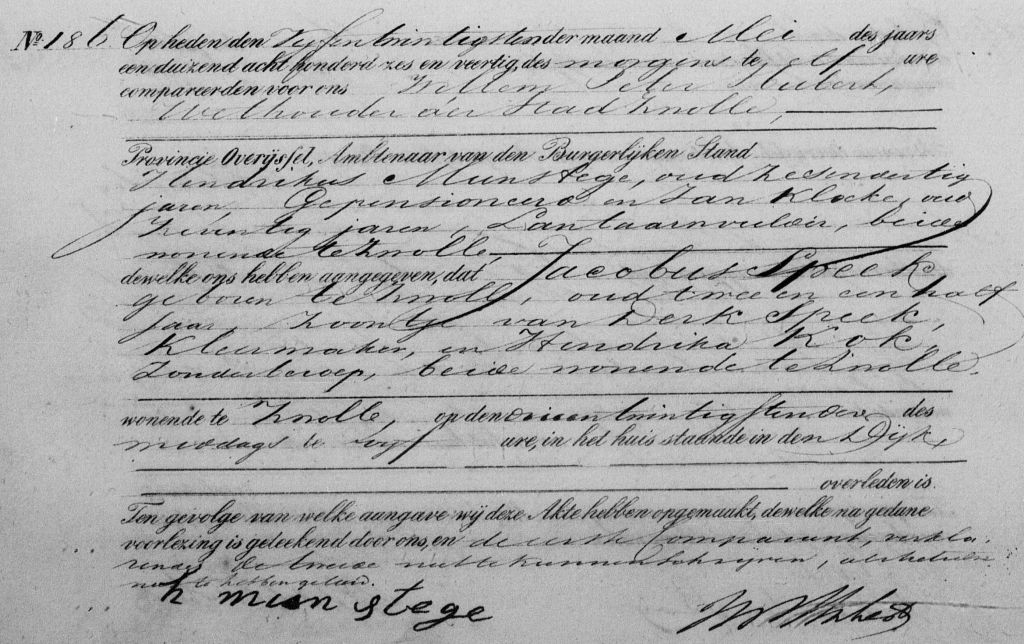 No. 186 Op heden den vyfentwintigsten der maand Mei des jaars
een duizend acht honderd zes en veertig, des morgens te elf ure
compareerden voor ons Willem Peter Hubert,
Wethouder der Stad Zwolle,
Provincie Overijssel, Ambtenaar van den Burgerlijken Stand
Hendrikus Munstege, oud zesendertig
jaren, Gepensioneerd en Jan Klocke, oud
zeventig jaren, Lantaarnvulder, beide
wonende te Zwolle,
dewelke ons hebben aangegeven, dat Jacobus Speek
geboren te Zwolle, oud twee en een half
jaar, zoontje van Derk Speek,
Kleermaker, en Hendrika Kok,
Zonder beroep, beide wonende te Zwolle.
wonende te Zwolle, op den drieentwintigsten dezer des
middags te vyf ure, in het huis staande in den Dijk,
overleden is.
Ten gevolge van welke aangave wij deze Akte hebben opgemaakt, dewelke na gedane
voorlezing is geteekend door ons, en de eerste Comparant, verkla-
rende de tweede niet te kunnen schrijven, als hetzelve
niet te hebben geleerd.
h munstege